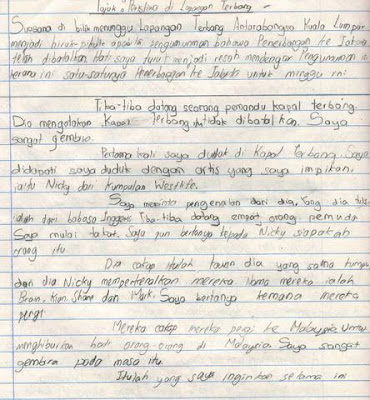 Tajuk : Peristiwa di Lapangan Terbang -
Suasana di bilik menunggu Lapangan Terbang Antarabangsa Kuala Lumpur
menjadi hiruk-pikuk apabila pengumuman bahawa Penerbangan ke Jakarta
telah dibatalkan. Hati saya turut menjadi resah mendengar Pengumuman ini
kerana ini satu-satunya Penerbangan ke Jakarta untuk minggu ini.
Tiba-tiba datang seorang pemandu kapal terbang.
Dia mengatakan Kapal Terbang itu tidak dibatalkan. Saya
sangat gembira.
Pertama kali saya duduk di Kapal Terbang. Saya
didapati saya duduk dengan artis yang saya impikan,
iaitu Nicky dari Kumpulan Westlife.
Saya meminta pengenalan dari dia. Yang dia tulis
ialah dari bahasa Inggeris. Tiba-tiba datang empat orang pemuda
Saya mulai takut. Saya pun bertanya kepada Nicky siapakah
orang itu.
Dia cakap itulah kawan dia yang sama kumpulan
dan dia Nicky memperkenalkan mereka. Nama mereka ialah
Brian, Kian, Shane dan Mark. Saya bertanya kemana mereka
pergi
Mereka cakap mereka pergi ke Malaysia untuk
menghiburkan hati orang-orang di Malaysia. Saya sangat
gembira pada masa itu.
Itulah yang saya inginkan selama ini